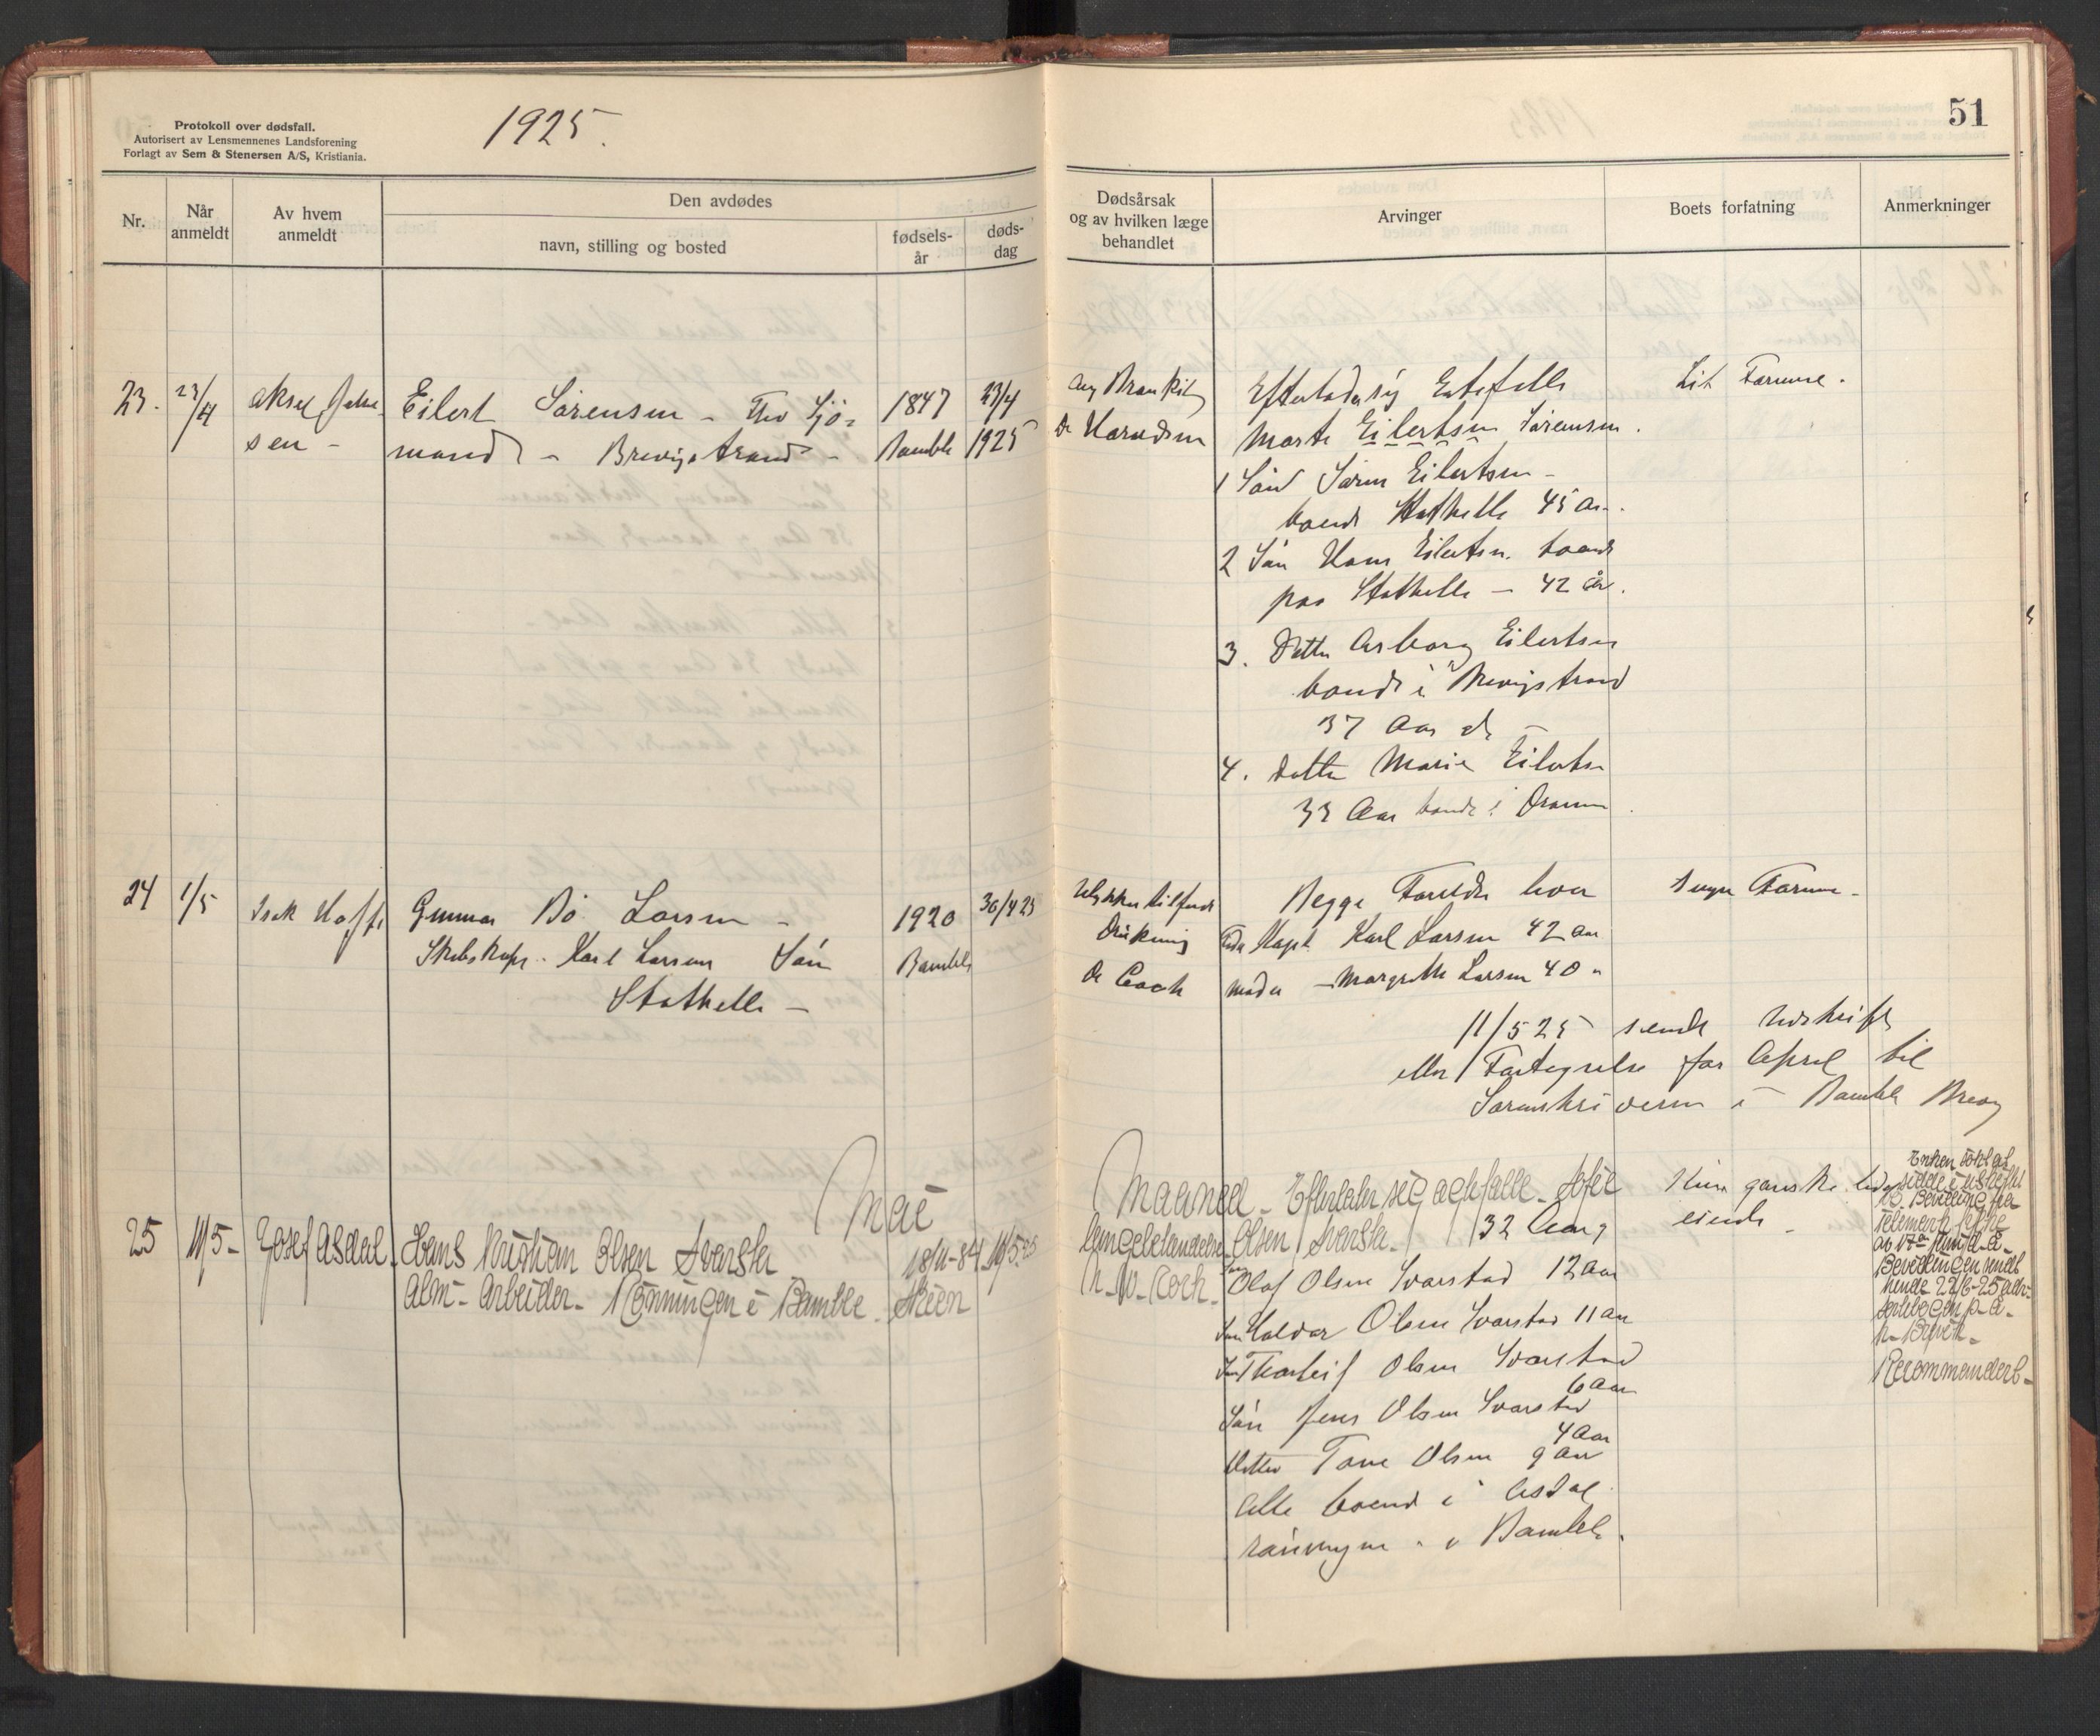 Protokoll over dødsfall.
Autorisert av Lensmennenes Landsforening
Forlagt av Sem & Stenersen A/S, Kristiania.
1925.
51
Nr.
Når
anmeldt
Av hvem
anmeldt
Den avdødes
navn, stilling og bosted
fødsels-
år
døds-
dag
Dødsårsak
og av hvilken læge
behandlet
Arvinger
Boets forfatning
Anmerkninger
23. 23/4 Aksel
sen -
Eilert Sørensen - Sjö-
mand - Brevigstrand -
1847
Bamble
23/4
1925
Eftelader sig Ektefelle
Marte Eilertsen Sørensen.
1 Søn Søren Eilertsen -
boende Stathelle 45 Aar.
2 Søn Hans Eilertsen boende
paa Stathelle - 42 år.
3. Datter Asborg Eilertsen
boende i Brevigstrand
37 Aar
4. datter Marie Eilertsen
33 Aar boende i
Lit Formue.
24 1/5 Isak
Gunnar Bö Larsen -
Karl Larsen Søn
Stathelle -
1920
Bamble
30/4 25
Ulykkestilfelde
Drukning
Dr Cock
Begge Foreldre lever
Fader Kapt. Karl Larsen 42 Aar
moder - Margrethe Larsen 40 "
Ingen Formue -
11/5 25 sendt Udskrift
eller Fortegnelse for April til
Sorenskriveren i Bamble Brevig
Mai Maaned -
25 11/5 - Josef Asdal.
Hans Kristian Olsen Svarstad
Alm - Arbeider - Rönningen i Bamble.
18/11-84
Skien
11/5-25
Lungebetændelse
Cock -
Efterlater sig
Olsen Svarstad - 32 Aar
Søn Olaf Olsen Svarstad 12 Aar
Søn Halvor Olsen Svarstad 11 Aar
Søn Thorleif Olsen Svarstad
6 Aar
Søn Jens Olsen Svarstad
4 Aar
datter Tone Olsen 9 Aar
alle boende i Asdal
rønningen i Bamble.
Kun ganske lidet
eiende -
Enken
sidde i uskiftet
bo. Bevilling fra
Telemark
Bevillingen sendt
hende 22/6-25
p. a.
Recommandert -